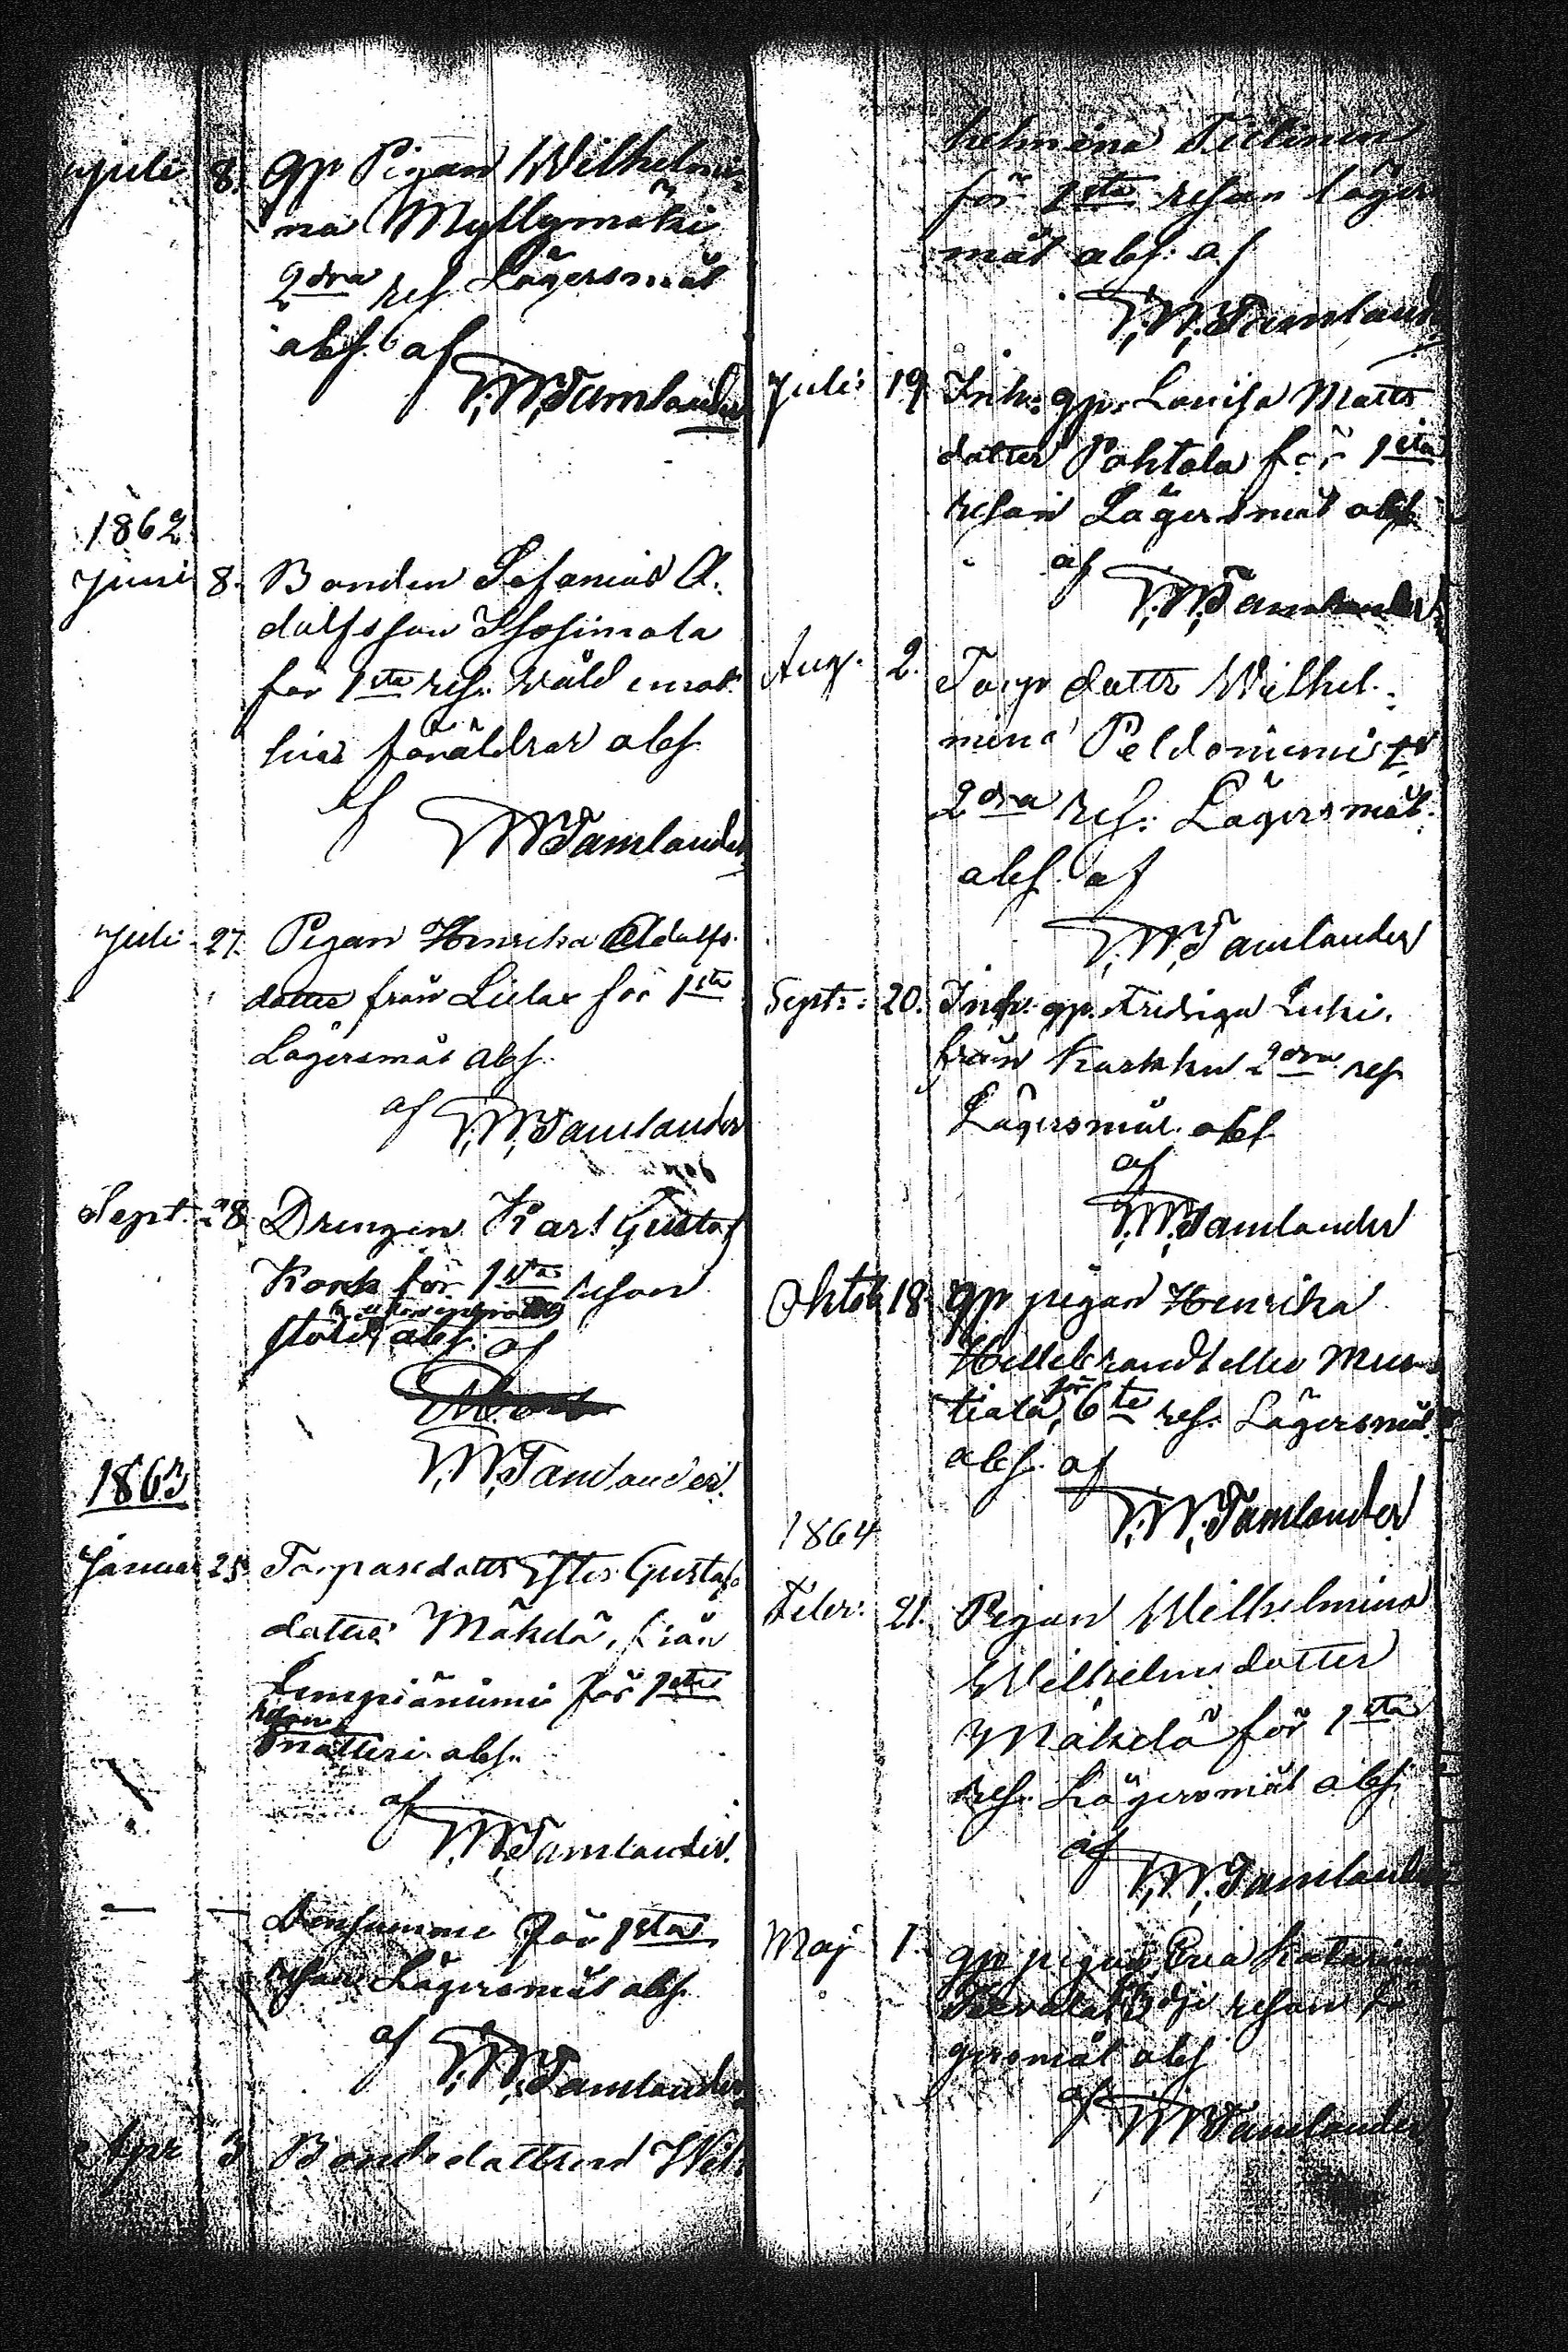 Juli 8. gp Pigan Wilhelmi-
na Myllymäki
2dra res Lägersmål
abs. af
T. W. Tamlander
1862
Juni 8. Bonden Sefanias A.
dolfsson
för 1sta res. våld emot
sina föräldrar abs.
af T W Tamlander
Juli 27. Pigan Henrika Adolfs-
dotter från för 1sta
Lägersmål abs.
af T. W. Tamlander
Sept. 28 Drengen Karl Gustaf
Korck för 1sta resan
stöld abs. af
T. W. Tamlander.
1863
Januar 25 Torparedottr Ester Gustafs
dotter Mäkelä, från
Lempiäniemi för 1sta
resan
abs.
af
T. W. Tamlander.
— — Densamme för 1sta
resan Lägersmål abs.
af T. W. Tamlander
Apr 3 Bondedottren Wil-
helmina
för 1sta resan läger
mål abs. af
T. W. Tamland
Juli 19 Inh: gp. Lovisa Matts
dotter Pohtola för 1sta
resan Lägersmål abs
af
T. W. Tamlander
Aug. 2. Torp dottr Wilhel-
mina Peldoniemi fr
2dra res. Lägersmål.
abs. af
T. W. Tamlander
Sept: 20. Inh: gp.
från Karkku 2dra res
Lägersmål abs
af
T. W. Tamlander
Oktob 18. gp pigan Henrika
Hellebrandt eller
för 6te res. Lägersmål
abs. af
T. W. Tamlander
1864
Febr: 21. Pigan Wilhelmina
Wilhelmsdotter
Mäkelä för 1sta
res. Lägersmål abs.
af
T. W. Tamlander
Maj 1. gp pigan Eva Katarina
3dje resan lä
gersmål abs
af T W Tamlander